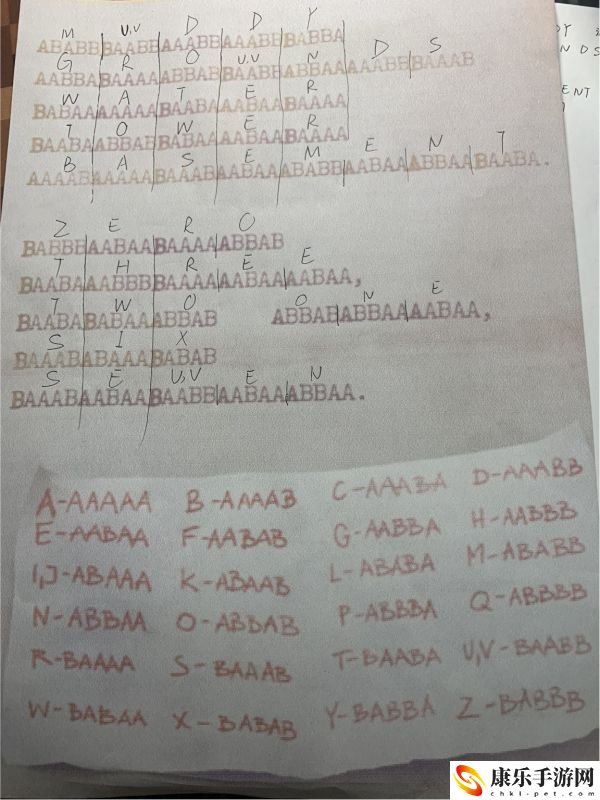 M U,V D D Y
ABABBBAABBAAABBAAABBBABBA
G R O U,V N D S
AABBABAAAAABBABBAABBABBAAAAABBBAAAB
W A T E R
BABAAAAAAABAABAAABAABAAAA
T O W E R
BAABAABBABBABAAAABAABAAAA
B A S E M E N T
AAAABAAAAABAAABAABAAABABBAABAAABBAABAABA.
Z E R O
BABBBAABAABAAAAABBAB
T H R E E
BAABAAABBBBAAAAAABAAAABAA,
T W O O N E
BAABABABAAABBAB ABBABABBAAAABAA,
S I X
BAAABABAAABABAB
S E U,V E N
BAAABAABAABAABBAABAAABBAA.
A-AAAAA B-AAAAB C-AAABA D-AAABB
E-AABAA F-AABAB G-AABBA H-AABBB
I,J-ABAAA K-ABAAB L-ABABA M-ABABB
N-ABBAA O-ABBAB P-ABBBA Q-ABBBB
R-BAAAA S-BAAAB T-BAABA U,V-BAABB
W-BABAA X-BABAB Y-BABBA Z-BABBB
DY
NDS
ENT
康乐手游网
chkl-pet.com